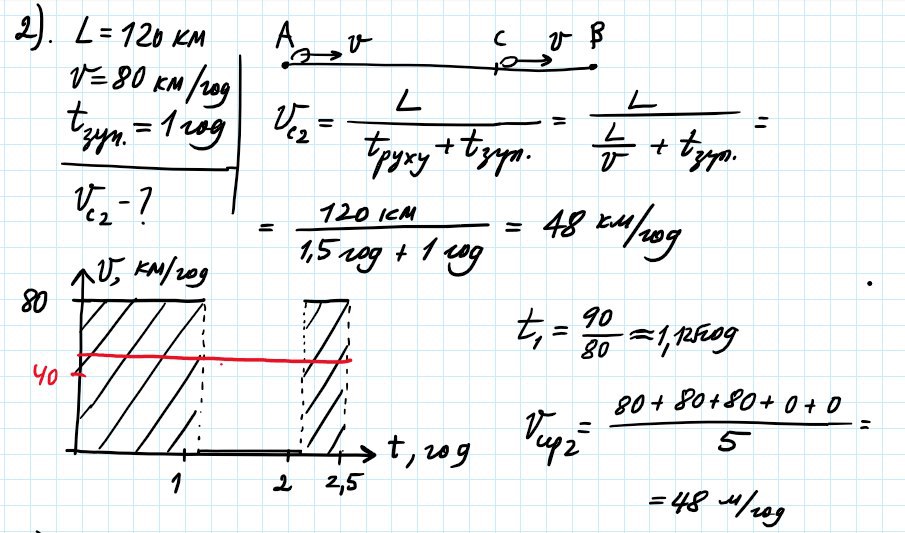 2). L = 120 км
v = 80 км/год
t зуп. = 1 год
v с2 - ?
A v C v B
v с2 = L / (t руху + t зуп.) = L / (L/v + t зуп.) =
= 120 км / (1,5 год + 1 год) = 48 км/год
v, км/год
80
40
1 2 2,5 t, год
t₁ = 90/80 ≈ 1,125год
v ср2 = (80 + 80 + 80 + 0 + 0) / 5 =
= 48 м/год